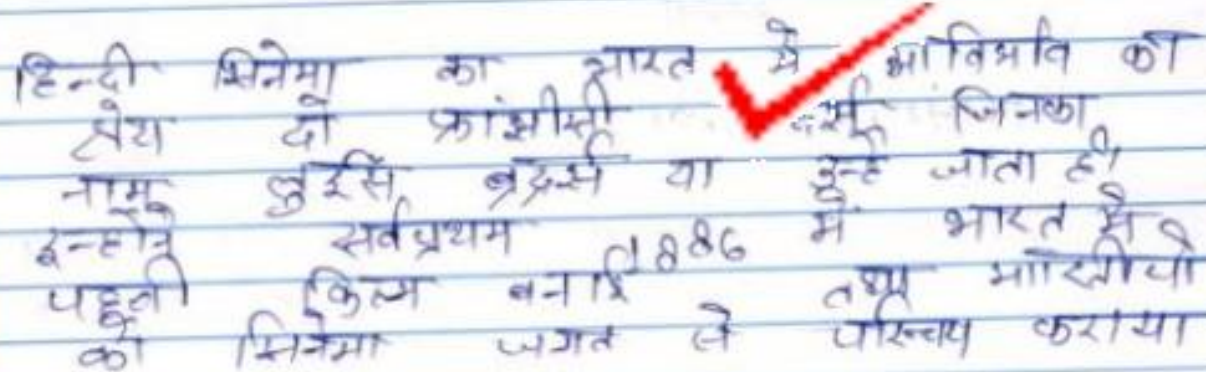 हिन्दी सिनेमा का भारत मे आविर्भाव की
श्रेय दो फ्रांसीसी जिनका
नाम लुईस ब्रदर्स था इन्हे जाता है।
इन्होने सर्वप्रथम 1886 में भारत मे
पहली फिल्म बनाई तथा भारतीयो
को सिनेमा जगत से परिचय कराया